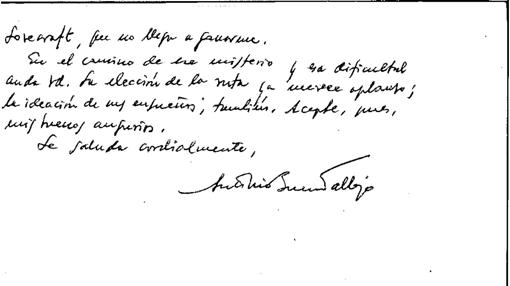 Lovecraft, que no llega a ganarme.
En el camino de ese misterio y esa dificultad
anda Vd. Su elección de la ruta ya merece aplauso;
la ideación de sus empeños, también. Acepte, pues,
mis buenos augurios.
Le saluda cordialmente,
Antonio Buero Vallejo